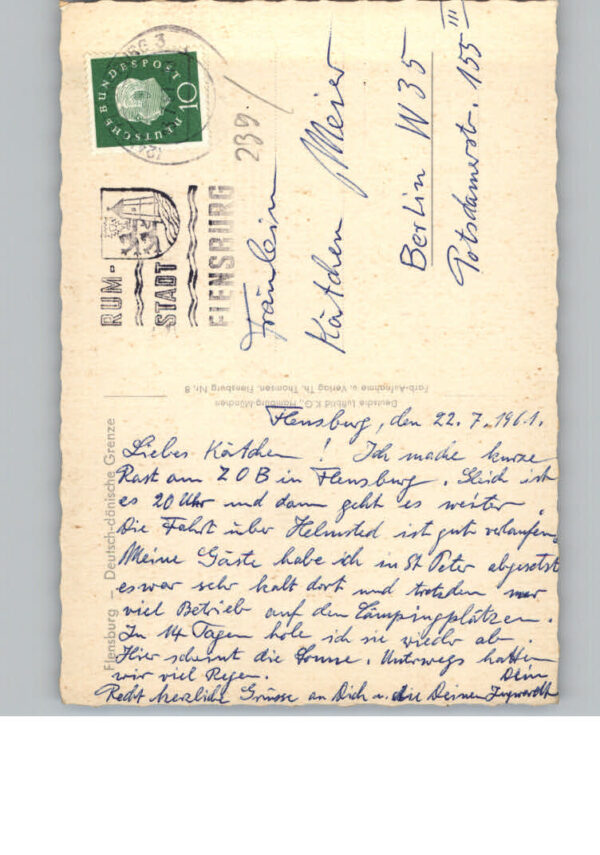 DEUTSCHE BUNDESPOST
10
RUM-
STADT
FLENSBURG
239.
Fräulein
Kätchen Meier
Berlin W 35
Potsdamerstr. 155 III
Deutsche Luftbild K.G., Hamburg-München
Farb-Aufnahme u. Verlag Th. Thomsen, Flensburg Nr. 8
Flensburg – Deutsch-dänische Grenze
Flensburg, den 22.7.1961.
Liebes Kätchen! Ich mache kurze
Rast am ZOB in Flensburg. Gleich ist
es 20 Uhr und dann geht es weiter.
Die Fahrt über Helmsted ist gut verlaufen.
Meine Gäste habe ich in St Peter abgesetzt
es war sehr kalt dort und trotzdem war
viel Betrieb auf den Cämpingplätzen.
In 14 Tagen hole ich sie wieder ab.
Hier scheint die Sonne. Unterwegs hatten
wir viel Regen.
Recht herzliche Grüsse an Dich u. die Deinen Dein